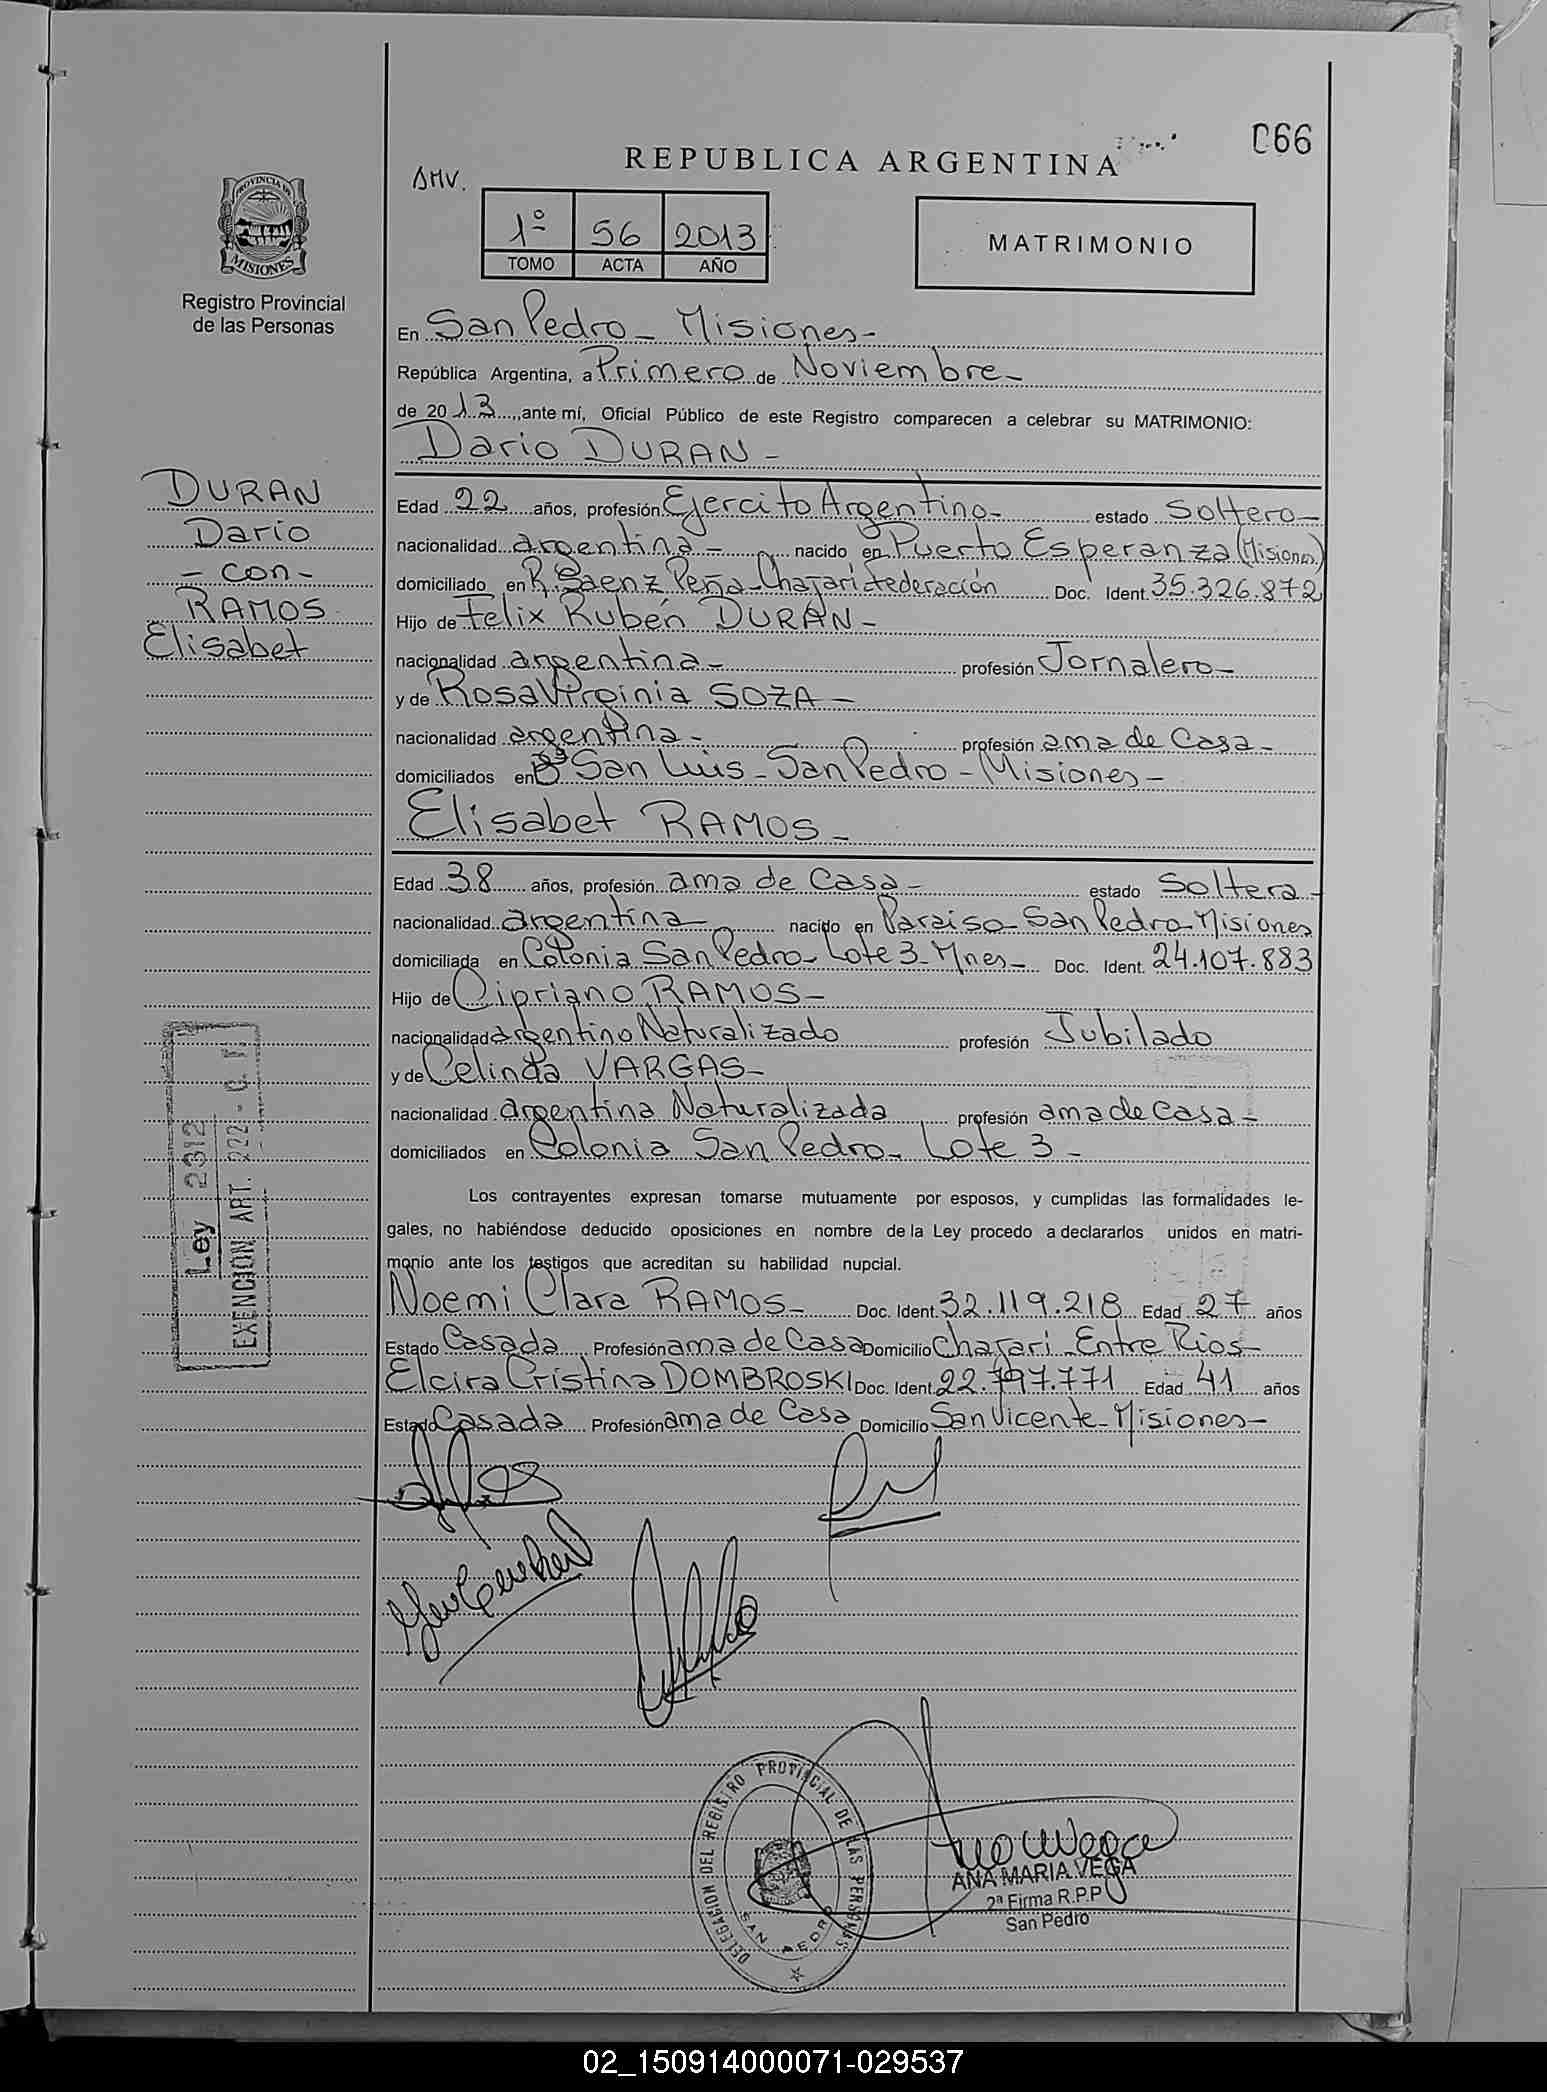 066
REPUBLICA ARGENTINA
AMV.
1º 56 2013
TOMO ACTA AÑO
MATRIMONIO
PROVINCIA DE MISIONES
Registro Provincial
de las Personas
En San Pedro - Misiones -
República Argentina, a Primero de Noviembre -
de 2013, ante mí, Oficial Público de este Registro comparecen a celebrar su MATRIMONIO:
Dario DURAN -
DURAN
Dario
- con -
RAMOS
Elisabet
Edad 22 años, profesión Ejercito Argentino - estado Soltero -
nacionalidad argentina - nacido en Puerto Esperanza (Misiones)
domiciliado en R. Saenz Peña - Chajarí Federación Doc. Ident. 35.326.872
Hijo de Felix Rubén DURAN -
nacionalidad argentina - profesión Jornalero -
y de Rosa Virginia SOZA -
nacionalidad argentina - profesión ama de Casa -
domiciliados en Bº San Luis - San Pedro - Misiones -
Elisabet RAMOS -
Edad 38 años, profesión ama de Casa - estado Soltera -
nacionalidad argentina nacido en Paraiso - San Pedro - Misiones
domiciliada en Colonia San Pedro - Lote 3 - Mnes - Doc. Ident. 24.107.883
Hijo de Cipriano RAMOS -
nacionalidad argentino Naturalizado profesión Jubilado
y de Celinda VARGAS -
nacionalidad argentina Naturalizada profesión ama de casa -
domiciliados en Colonia San Pedro - Lote 3 -
Ley 2312
EXENCION ART. 222 - C. F.
Los contrayentes expresan tomarse mutuamente por esposos, y cumplidas las formalidades le-
gales, no habiéndose deducido oposiciones en nombre de la Ley procedo a declararlos unidos en matri-
monio ante los testigos que acreditan su habilidad nupcial.
Noemi Clara RAMOS - Doc. Ident. 32.119.218 Edad 27 años
Estado Casada Profesión ama de Casa Domicilio Chajari - Entre Rios -
Elcira Cristina DOMBROSKI Doc. Ident. 22.797.771 Edad 41 años
Estado Casada Profesión ama de Casa Domicilio San Vicente - Misiones -
DELEGACION DEL REGISTRO PROVINCIAL DE LAS PERSONAS
SAN PEDRO
ANA MARIA VEGA
2ª Firma R.P.P
San Pedro
02_150914000071-029537